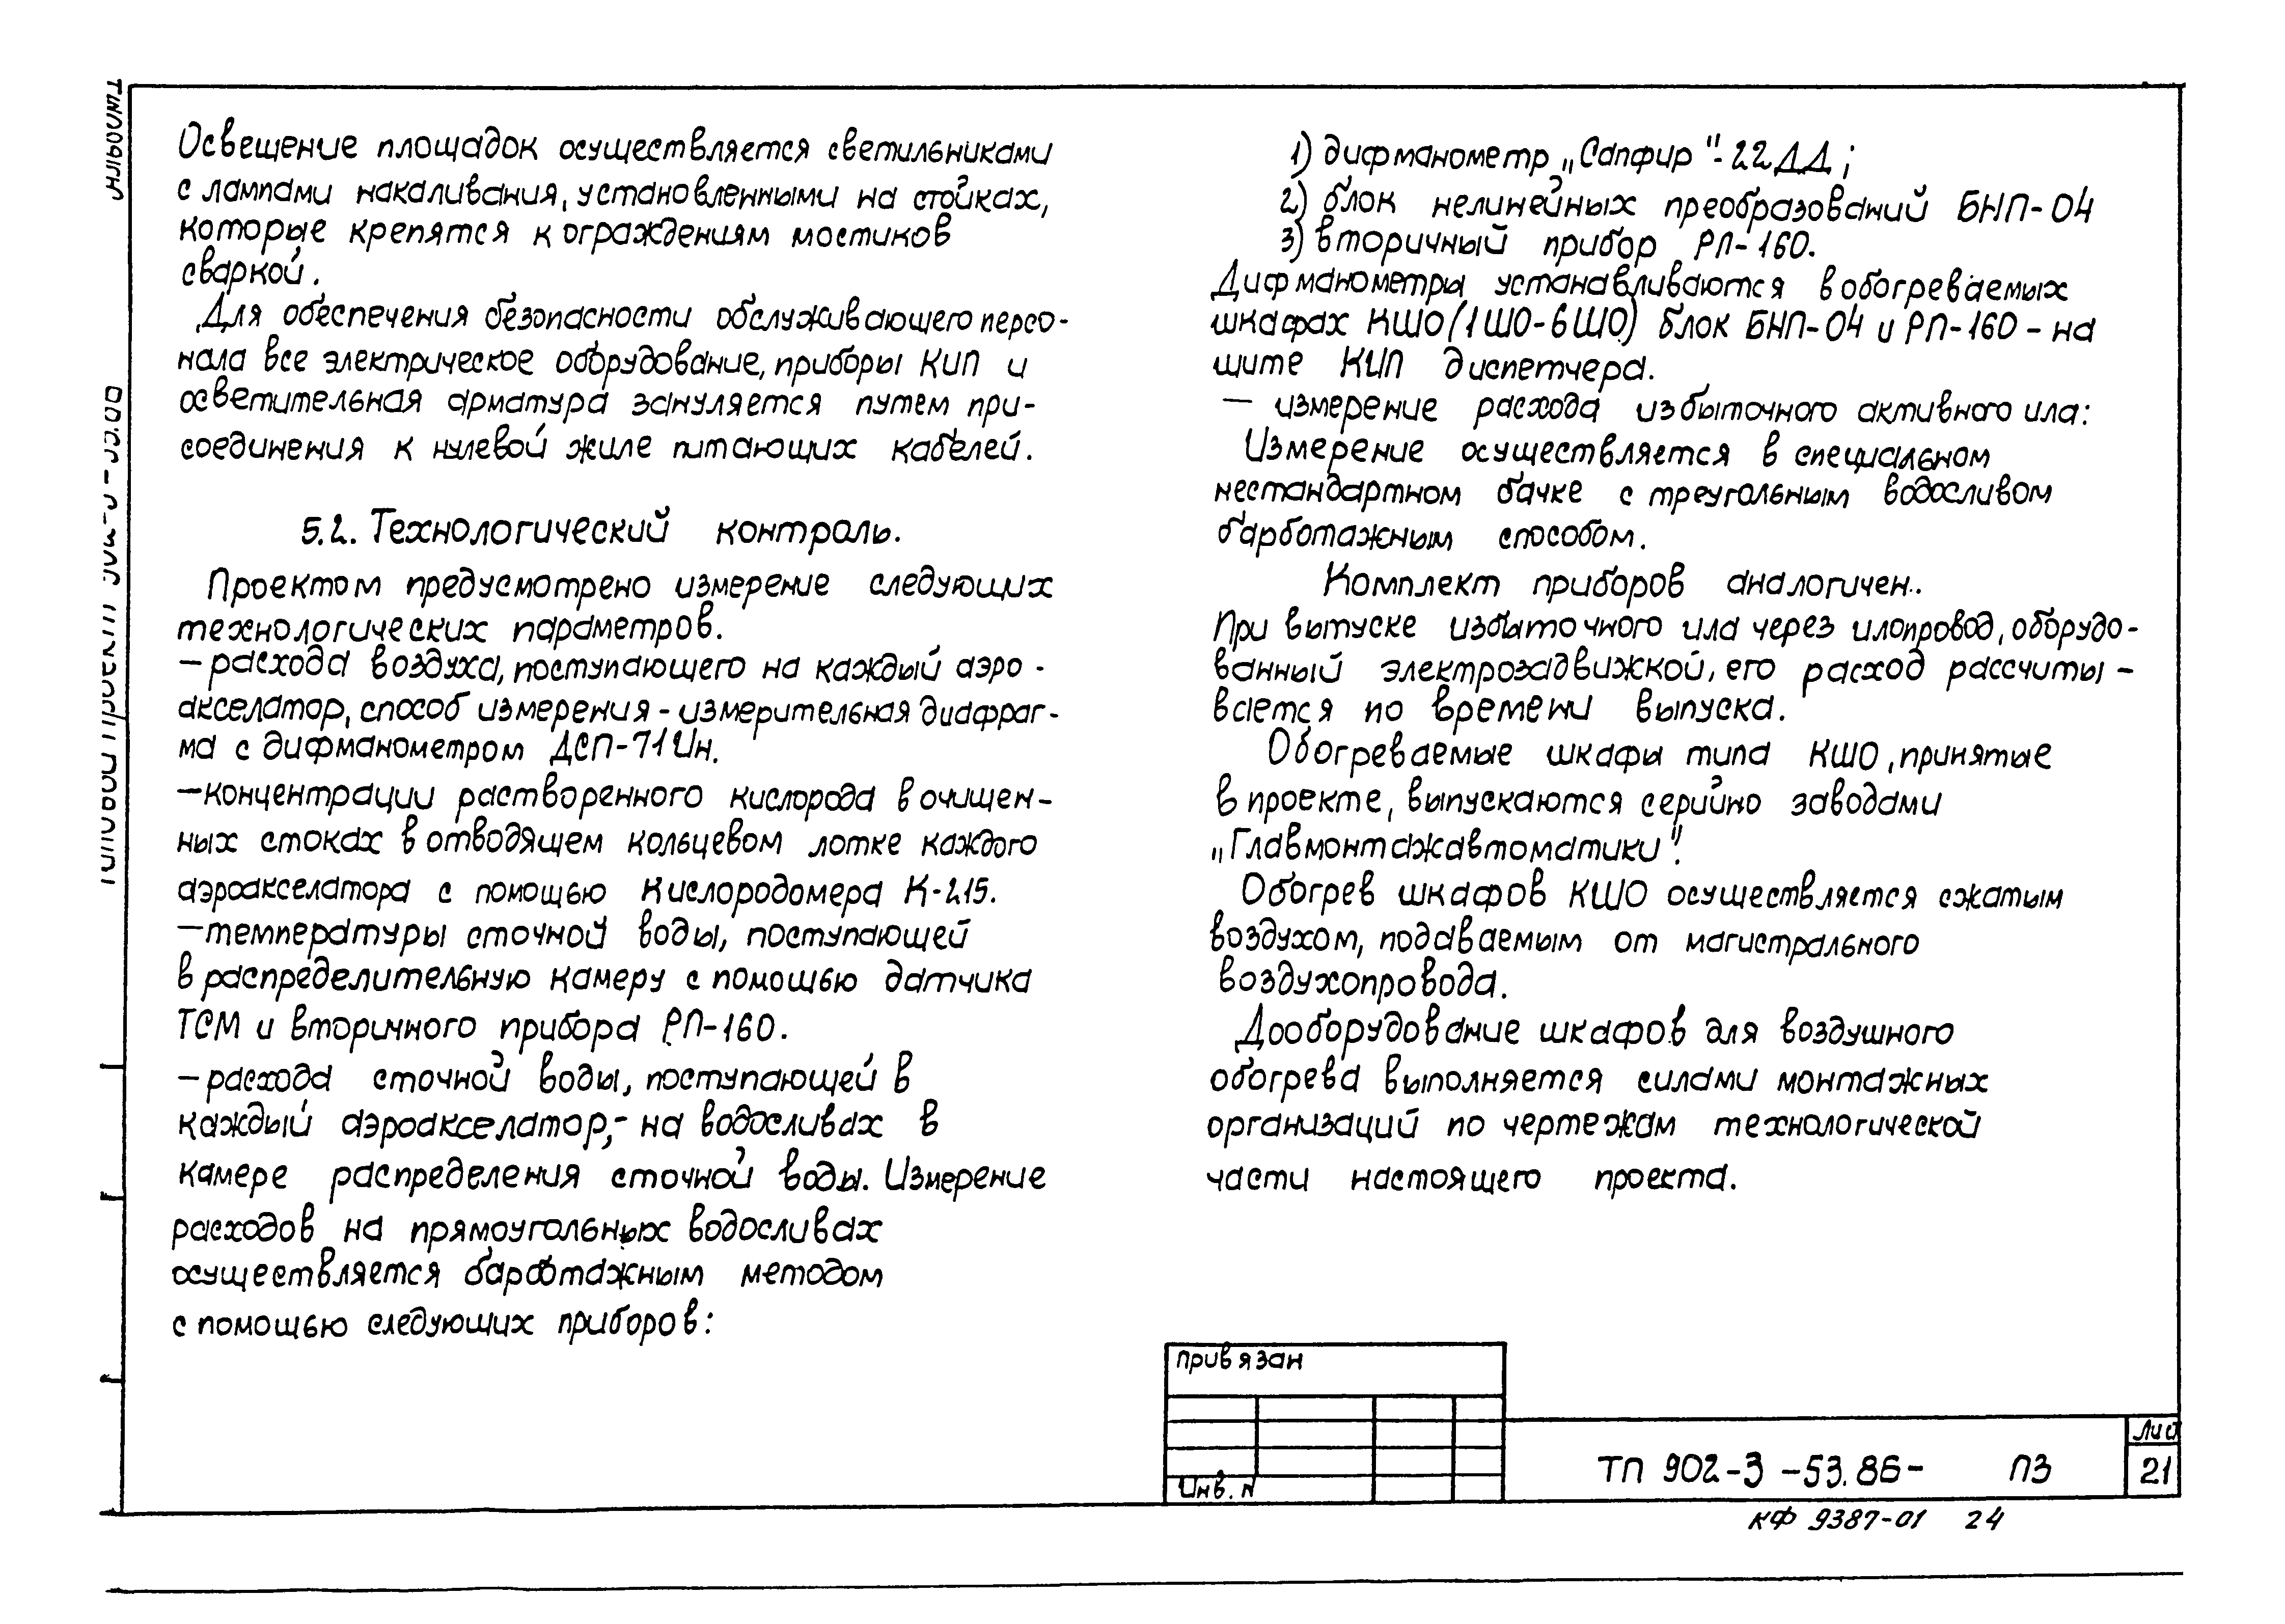 Освещение площадок осуществляется светильниками
с лампами накаливания, установленными на стойках,
которые крепятся к ограждениям мостиков
сваркой.
Для обеспечения безопасности обслуживающего персо-
нала все электрическое оборудование, приборы КИП и
осветительная арматура зануляется путем при-
соединения к нулевой жиле питающих кабелей.
5.2. Технологический контроль.
Проектом предусмотрено измерение следующих
технологических параметров.
– расхода воздуха, поступающего на каждый аэро-
акселатор, способ измерения - измерительная диафраг-
ма с дифманометром ДСП-71Ин.
– концентрации растворенного кислорода в очищен-
ных стоках в отводящем кольцевом лотке каждого
аэроакселатора с помощью Кислородомера К-215.
– температуры сточной воды, поступающей
в распределительную камеру с помощью датчика
ТСМ и вторичного прибора РП-160.
– расхода сточной воды, поступающей в
каждый аэроакселатор,- на водосливах в
камере распределения сточной воды. Измерение
расходов на прямоугольных водосливах
осуществляется барботажным методом
с помощью следующих приборов:
1) дифманометр „Сапфир"-22ДД;
2) блок нелинейных преобразований БНП-04
3) вторичный прибор РП-160.
Дифманометры устанавливаются в обогреваемых
шкафах КШО (1ШО-6ШО) блок БНП-04 и РП-160 - на
щите КИП диспетчера.
– измерение расхода избыточного активного ила:
Измерение осуществляется в специальном
нестандартном бачке с треугольным водосливом
барботажным способом.
Комплект приборов аналогичен.
При выпуске избыточного ила через илопровод, оборудо-
ванный электрозадвижкой, его расход рассчиты-
вается по времени выпуска.
Обогреваемые шкафы типа КШО, принятые
в проекте, выпускаются серийно заводами
„Главмонтажавтоматики".
Обогрев шкафов КШО осуществляется сжатым
воздухом, подаваемым от магистрального
воздухопровода.
Дооборудование шкафов для воздушного
обогрева выполняется силами монтажных
организаций по чертежам технологической
части настоящего проекта.
Привязан
Инв. N
ТП 902-3-53.86- ПЗ
Лист
21
КФ 9387-01 24